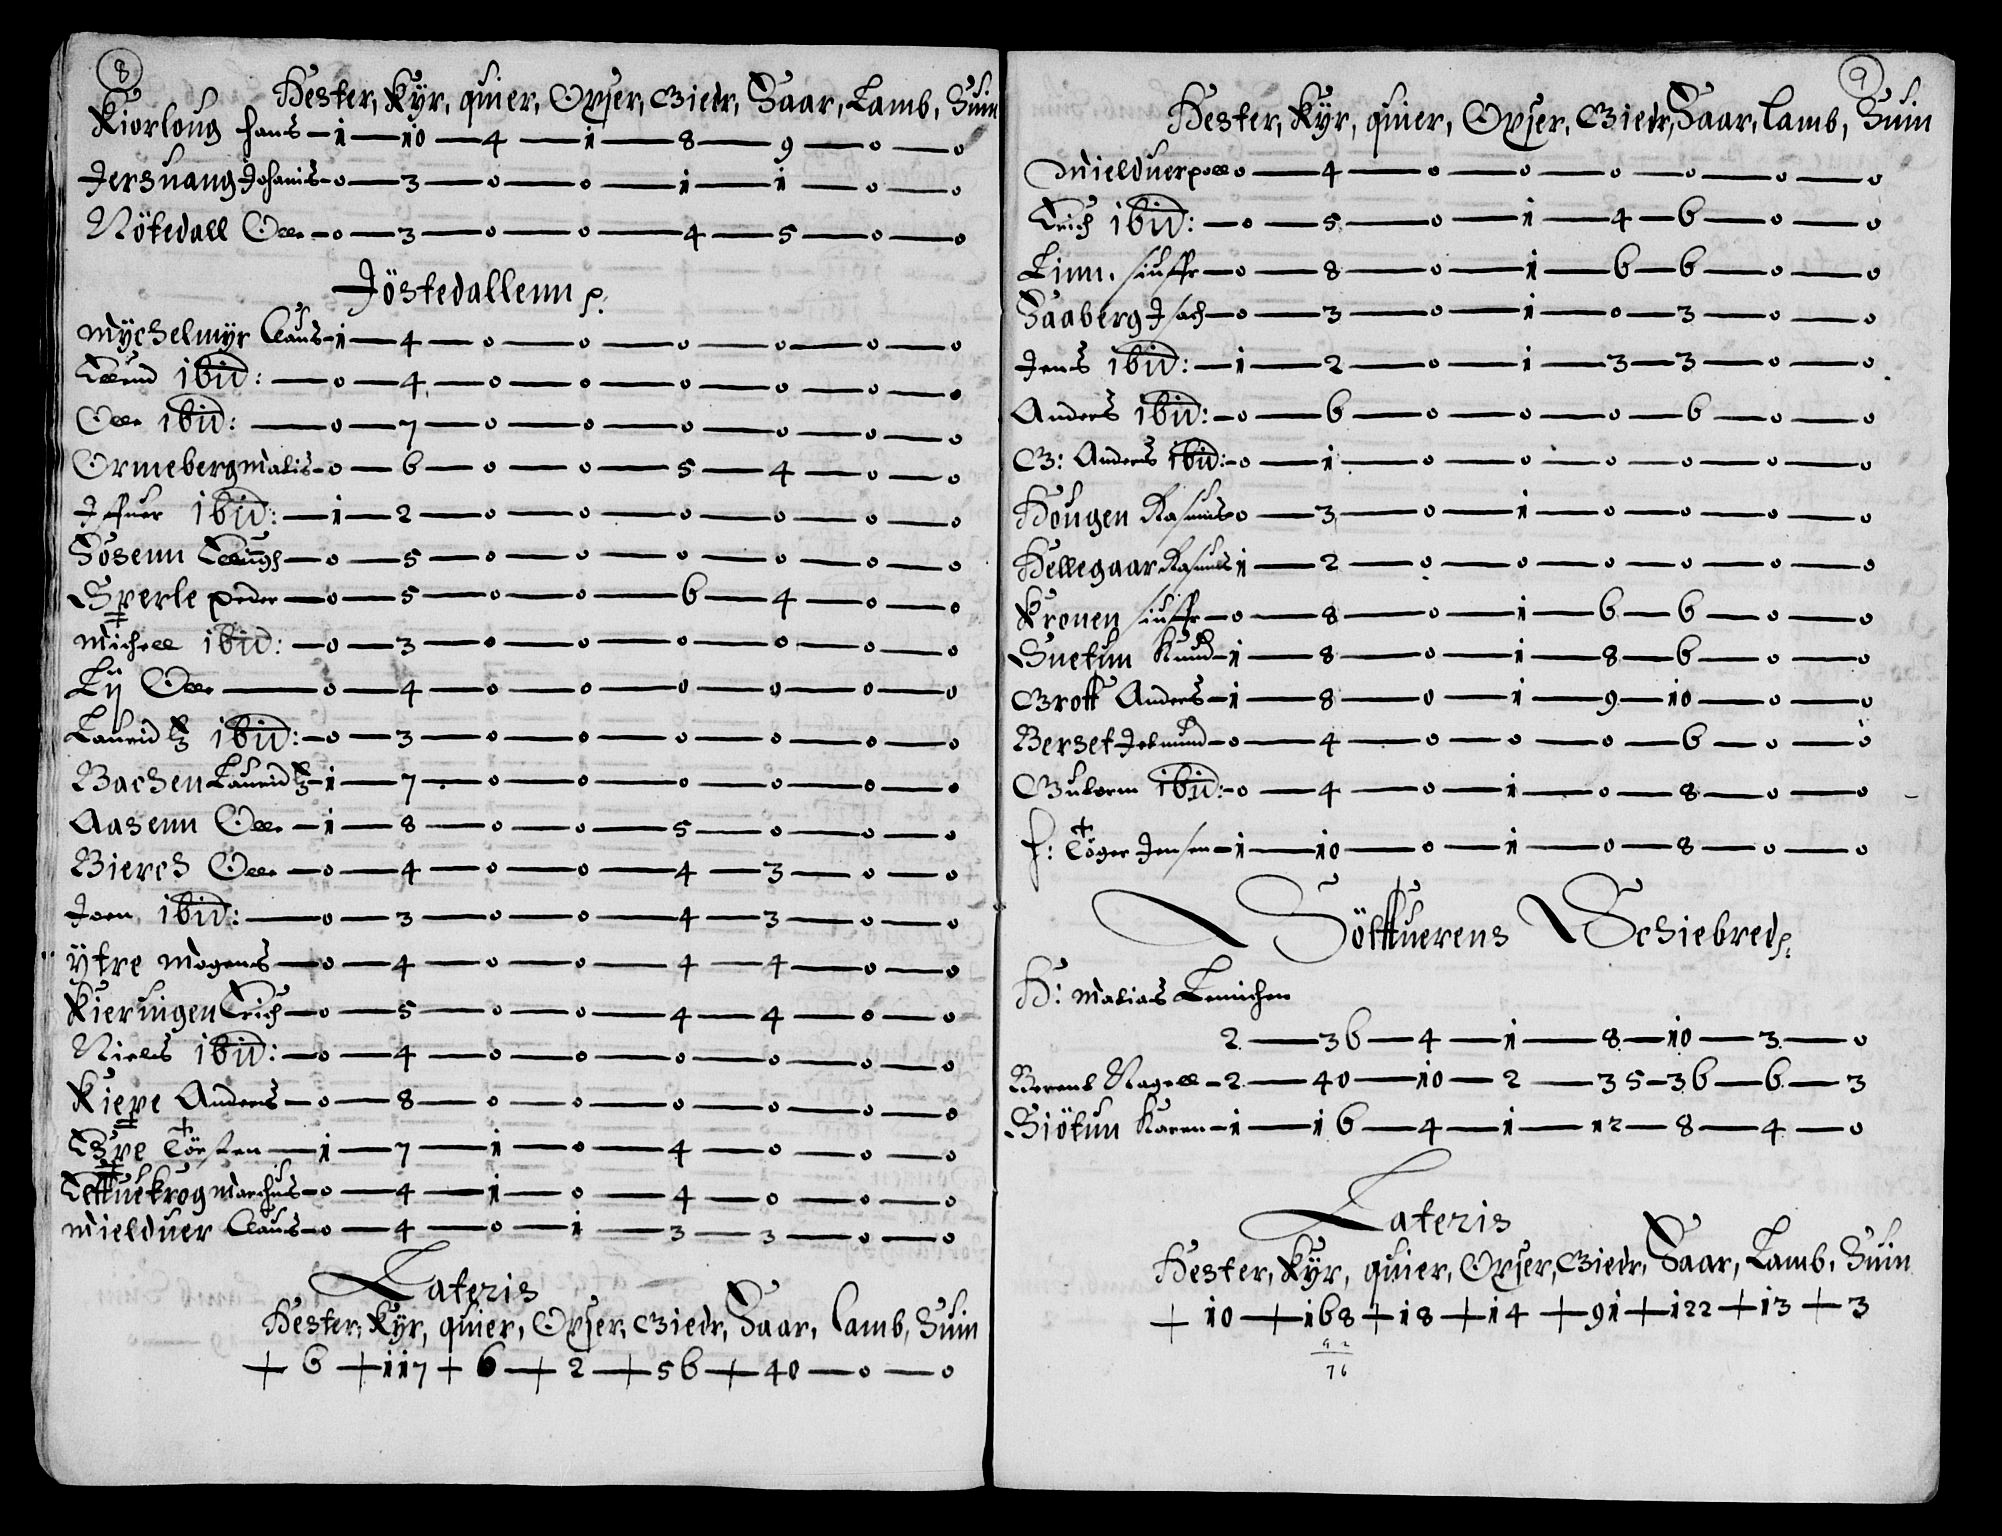 8
Hester, Kyr, quier, Oxser, Gieder, Saar, Lamb, Suin
Kiorloug Hans — 1 — 10 — 4 — 1 — 8 — 9 — 0 — 0
Jersuang Johanis — 0 — 3 — 0 — 0 — 1 — 1 — 0 — 0
Nötedall Olle — 0 — 3 — 0 — 0 — 4 — 5 — 0 — 0
Jöstedallenn p:
Mychelmyr Claus — 1 — 4 — 0 — 0 — 0 — 0 — 0 — 0
ibid: — 0 — 4 — 0 — 0 — 0 — 0 — 0 — 0
Olle ibid: — 0 — 7 — 0 — 0 — 0 — 0 — 0 — 0
Ormeberg Matis — 0 — 6 — 0 — 0 — 5 — 4 — 0 — 0
Iffuer ibid: — 1 — 2 — 0 — 0 — 0 — 0 — 0 — 0
Sösenn — 0 — 5 — 0 — 0 — 0 — 0 — 0 — 0
Sperle Peder — 0 — 5 — 0 — 0 — 6 — 4 — 0 — 0
Michell ibid: — 0 — 3 — 0 — 0 — 0 — 0 — 0 — 0
Lij Olle — 0 — 4 — 0 — 0 — 0 — 0 — 0 — 0
Lauridtz ibid: — 0 — 3 — 0 — 0 — 0 — 0 — 0 — 0
Bachen Lauridtz — 1 — 7 — 0 — 0 — 0 — 0 — 0 — 0
Aasenn Olle — 1 — 8 — 0 — 0 — 5 — 0 — 0 — 0
Bierch Olle — 0 — 4 — 0 — 0 — 4 — 3 — 0 — 0
Joen ibid: — 0 — 3 — 0 — 0 — 4 — 3 — 0 — 0
ÿtre Mogens — 0 — 4 — 0 — 0 — 4 — 4 — 0 — 0
Kieruigen Erich — 0 — 5 — 0 — 0 — 4 — 4 — 0 — 0
Niels ibid: — 0 — 4 — 0 — 0 — 0 — 0 — 0 — 0
Kiepe Anders — 0 — 8 — 0 — 0 — 0 — 0 — 0 — 0
Espe Törsten — 1 — 7 — 1 — 0 — 4 — 0 — 0 — 0
Marchus — 0 — 4 — 1 — 0 — 4 — 0 — 0 — 0
Mielduer Claus — 0 — 4 — 0 — 1 — 3 — 3 — 0 — 0
Lateris
Hester, Kyr, quier, Oxser, Gieder, Saar, Lamb, Suin
+ 6 + 117 + 6 + 2 + 56 + 40 — 0 — 0
9
Hester, Kyr, quier, Oxser, Gieder, Saar, Lamb, Suin
Mielduer Poell 0 — 4 — 0 — 0 — 0 — 0 — 0 — 0
Erich ibid: — 0 — 5 — 0 — 1 — 4 — 6 — 0 — 0
Linn, siuffr — 0 — 8 — 0 — 1 — 6 — 6 — 0 — 0
Saaberg Isach — 0 — 3 — 0 — 1 — 0 — 3 — 0 — 0
Jens ibid: — 1 — 2 — 0 — 1 — 3 — 3 — 0 — 0
Anders ibid: — 0 — 6 — 0 — 0 — 0 — 6 — 0 — 0
G: Anders ibid: — 0 — 1 — 0 — 0 — 0 — 0 — 0 — 0
Hougen Rasmus 0 — 3 — 0 — 1 — 0 — 0 — 0 — 0
Hellegaar Rasmus 1 — 2 — 0 — 0 — 0 — 0 — 0 — 0
Kronen siuffr — 0 — 8 — 0 — 1 — 6 — 6 — 0 — 0
Suetun Knud — 1 — 8 — 0 — 1 — 8 — 6 — 0 — 0
Groff Anders — 1 — 8 — 0 — 1 — 9 — 10 — 0 — 0
Berset Jermund — 0 — 4 — 0 — 0 — 0 — 6 — 0 — 0
Gulorm ibid: — 0 — 4 — 0 — 1 — 0 — 8 — 0 — 0
f: Töger Jensen — 1 — 10 — 0 — 1 — 0 — 8 — 0 — 0
Söltuerens Schiebred p:
H: Matias Lemichen
2 — 36 — 4 — 1 — 8 — 10 — 3 — 0
Berent Nagell — 2 — 40 — 10 — 2 — 35 — 36 — 6 — 3
Siötun Karen — 1 — 16 — 4 — 1 — 12 — 8 — 4 — 0
Lateris
Hester, Kyr, quier, Oxser, Gieder, Saar, Lamb, Suin
+ 10 + 168 + 18 + 14 + 91 + 122 + 13 + 3
92
76